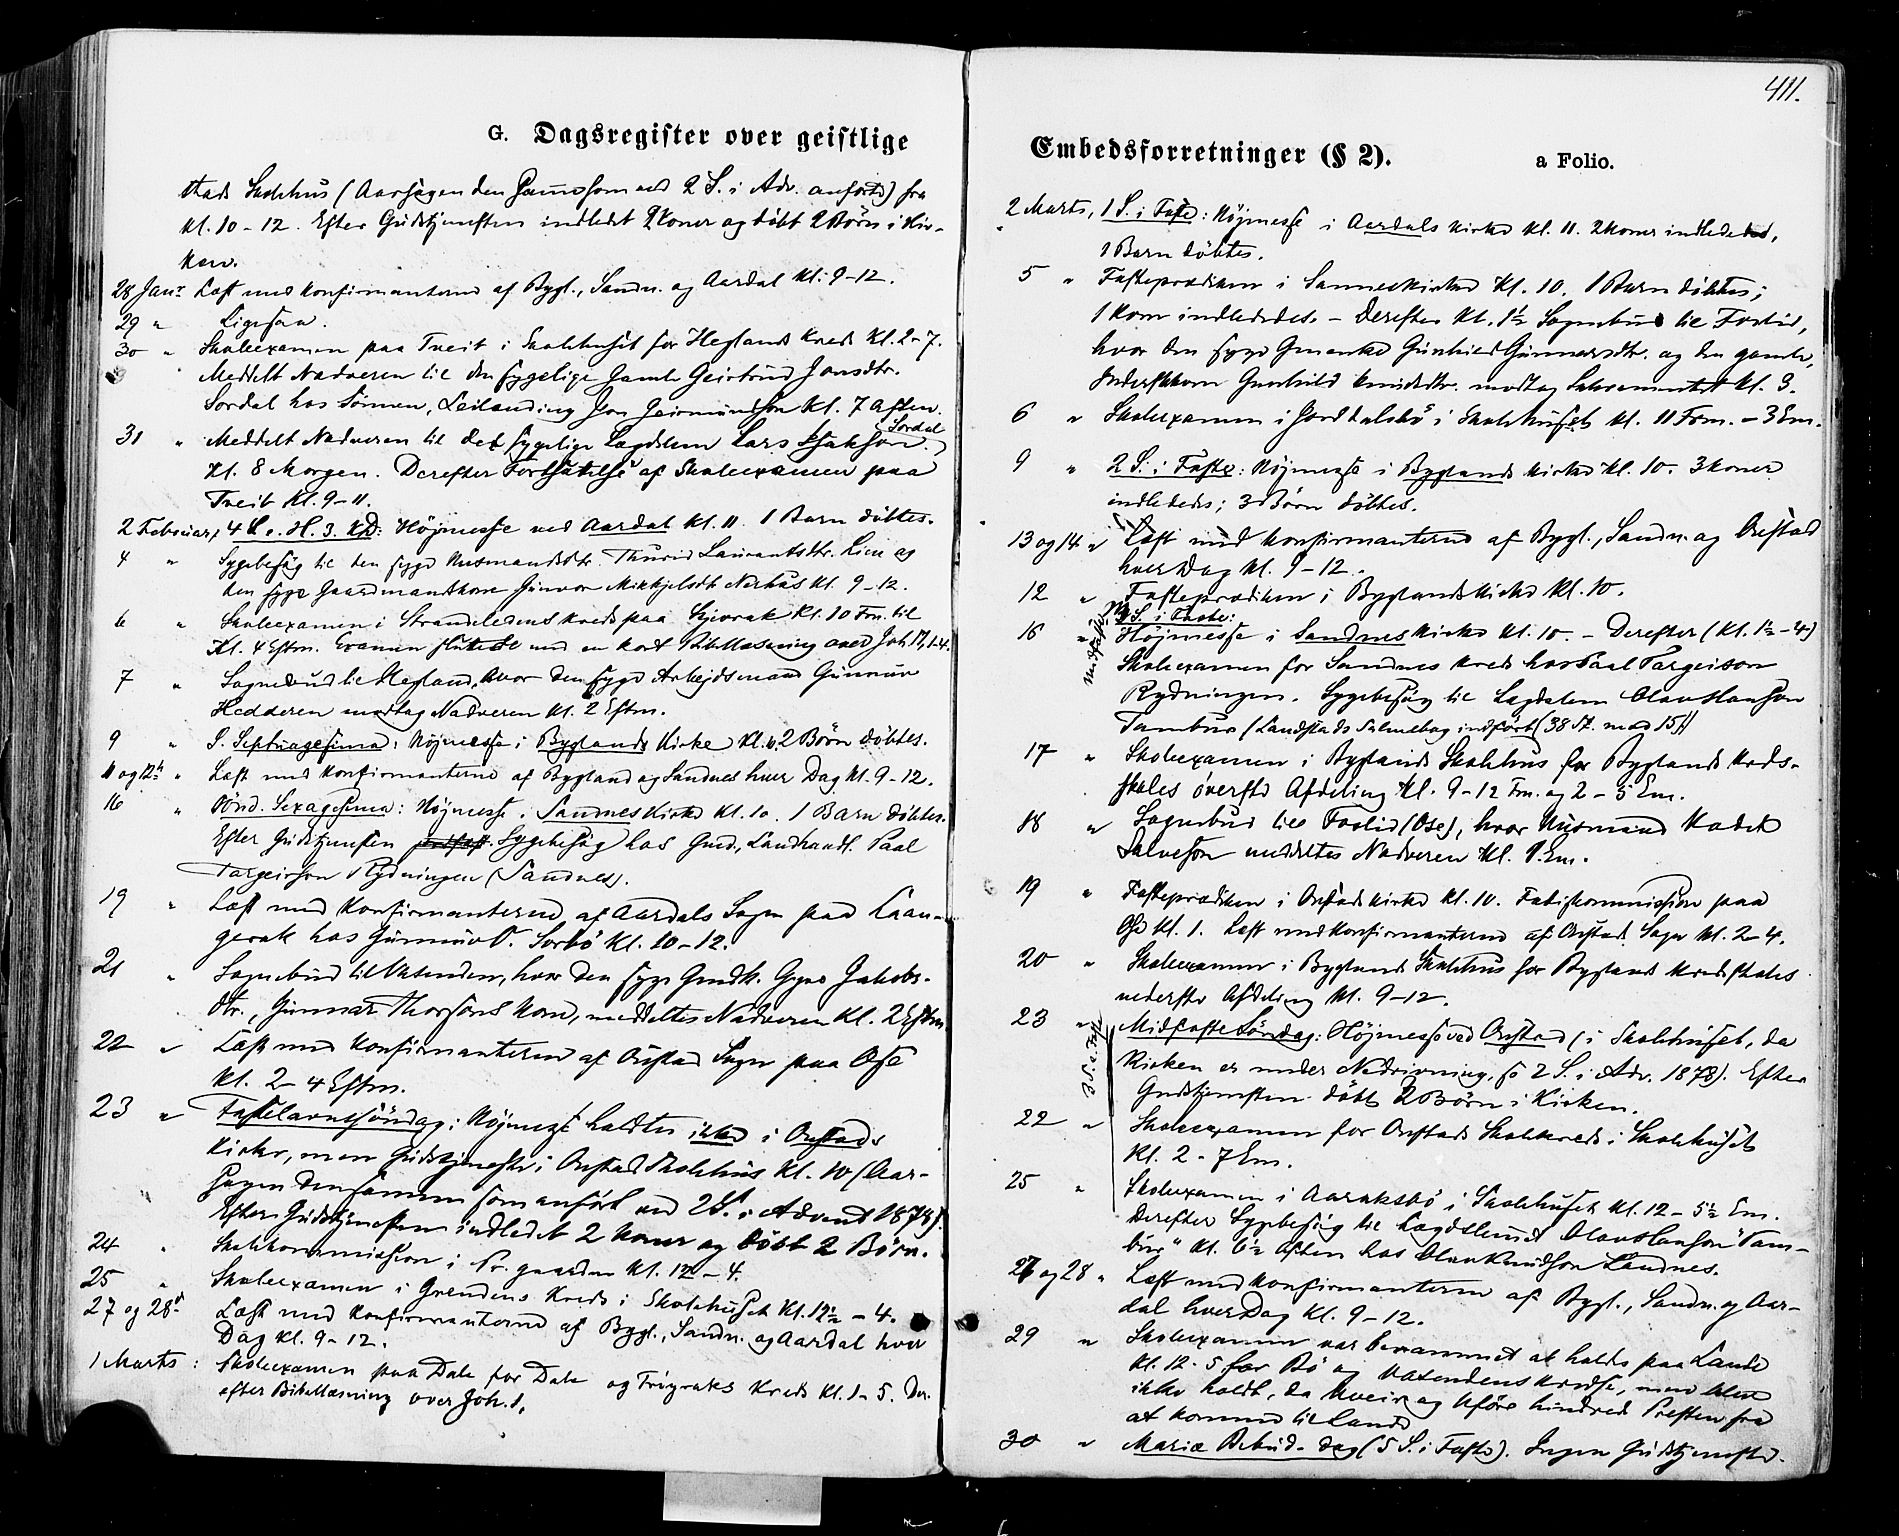 G. Dagsregister over geistlige
stads Skolehus (Aarsagen den samme som ved 2 S. i Adv. anførte) fra
Kl. 10 - 12. Efter Gudstjenesten indledet 2 Koner og døbt 2 Børn i Kir-
ken.
28 Janr Læst med Konfirmanterne af Bygl., Sandn. og Aardal Kl. 9-12.
29 " Ligesaa.
30 " Skoleexamen paa Tveit i Skolehuset for Heglands Kreds Kl. 2-7.
Meddelt Nadveren til den sygelige gamle Geirtrud Jonsdtr.
Sordal hos Sönnen, Leilænding Jon Geirmundson Kl. 7 Aften.
31 " Meddelt Nadveren til det sygelige Lægdslem Lars Isakson Sordal
Kl. 8 Morgen. Derefter Fortsættelse af Skoleexamen paa
Tveit Kl. 9-11.
2 Februar, 4 S. e. H. 3. K.D: Höjmesse ved Aardal Kl. 11. 1 Barn döbtes.
4 " Sygebesög til den syge Husmandsdtr. Thurid Lauvantsdtr. Lien og
den syge Gaardmandskone Gunvor Mikkjelsdtr Neshus Kl. 9-12.
6 " Skoleexamen i Strandeledens Kreds paa Kl. 10 Fm. til
Kl. 4 Eftm. Examen sluttede med en kort Bibellæsning over Joh. 1-4.
7 " Sognebud til Hegland, hvor den syge Arbejdsmand Gunnuv
Hedderen modtog Nadveren Kl. 2 Eftm.
9 " S. Septuagesima: Höjmesse i Byglands Kirke Kl. 10. 2 Börn döbtes.
11 og 12te " Læst med Konfirmanterne af Bygland og Sandnes hver Dag Kl. 9-12.
16 " Sönd. Sexagesima: Höjmesse i Sandnes Kirke Kl. 10. 1 Barn döbtes.
Efter Gudstjenesten Sygebesög hos Gmd., Landhandl. Paal
Targeirson Rydningen (Sandnes).
19 " Læst med Konfirmanterne af Aardals Sogn paa Laan-
gerak hos Gunnuv Sorbö Kl. 10-12.
21 " Sognebud til Vasenden, hvor den syge Gmdk. Gyro Jakobs-
dtr., Gunnar Thorsons Kone, meddeltes Nadveren Kl. 2 Eftm.
22 " Læst med Konfirmanterne af Austad Sogn paa Ose
Kl. 2-4 Eftm.
23 " Fastelavnssöndag: Höjmesse holdtes ikke i Austads
Kirke, men Gudstjeneste i Austad Skolehus Kl. 10 (Aar-
sagen densamme som anfört ved 2 S. i Advent 1878).
Efter Gudstjenesten indledet 2 Koner og döbt 2 Börn.
24 " Skolekommission i Pr. gaarden Kl. 12-4.
25 " Skoleexamen i Grendens Kreds i Skolehuset Kl. 12½ - 4.
27 og 28de Læst med Konfirmanterne af Bygl., Sandn. og Aardal hver
Dag Kl. 9-12.
1 Marts: Skoleexamen paa Dale for Dale og Frøyraks Kreds Kl. 1-5. Der-
efter Bibellæsning over Joh. 1.
411.
Embedsforretninger (§ 2). a Folio.
2 Marts, 1 S. i Faste: Höjmesse i Aardals Kirke Kl. 11. 2 Koner indledede,
1 Barn döbtes.
5 " Fasteprædiken i Sannes Kirke Kl. 10. 1 Barn döbtes;
1 Kone indlededes. - Derefter Kl. 1½ Sognebud til Foslid,
hvor den syge Gmenke Gunhild Gunnarsdtr. og den gamle,
Inderstkone Gunhild Knudsdtr. modtog Sakramentet Kl. 3.
6 " Skoleexamen i Jorddalsbö i Skolehuset Kl. 11 Form. - 3 Em.
9 " 2 S. i Faste: Höjmesse i Byglands Kirke Kl. 10. 3 Koner
indlededes; 3 Börn döbtes.
13 og 14 " Læst med Konfirmanterne af Bygl., Sandn. og Austad
hver Dag Kl. 9-12.
12 " Fasteprædiken i Byglands Kirke Kl. 10.
16 " S. i Faste:
Höjmesse i Sandnes Kirke Kl. 10. - Derefter (Kl. 1½-4)
Skoleexamen for Sandnes Kreds hos Paal Targeirson
Rydningen. Sygebesög til Lægdslem Olav Hanson
Tambur (Landstads Salmebog indfört (38 St. mod 15))
17 " Skoleexamen i Byglands Skolehus for Byglands Kreds-
skoles överste Afdeling Kl. 9-12 Fm. og 2-5 Em.
18 " Sognebud til Foslid (Ose), hvor Husmand
Salveson meddeltes Nadveren Kl. 1 Em.
19 " Fasteprædiken i Austads Kirke Kl. 10. Fattigkommission paa
Ose Kl. 1. Læst med Konfirmanterne af Austad Sogn Kl. 2-4.
20 " Skoleexamen i Byglands Skolehus for Byglands Kredsskoles
nederste Afdeling Kl. 9-12.
23 " 3 S. i Fast. Midfaste Söndag: Höjmesse ved Austad (i Skolehuset, da
Kirken er under Nedrivning, se 2 S. i Adv. 1878). Efter
Gudstjenesten döbt 2 Börn i Kirken.
22 " Skoleexamen for Austads Skolekreds i Skolehuset
Kl. 2 - 7 Em.
25 " Skoleexamen i Aaraksbö i Skolehuset Kl. 12 - 5½ Em.
Derefter Sygebesög til Lægdslemmet Olav Hanson "Tam-
bur" Kl. 6½ Aften hos Olav Knudson Sandnes.
27 og 28 " Læst med Konfirmanterne af Bygl., Sandn. og Aar-
dal hver Dag Kl. 9-12.
29 " Skoleexamen var berammet at holdes paa Lande
Kl. 12-5 for Bö og Vasendens Kredse, men blev
ikke holdt, da Uveir og Uföre hindred Presten fra
at komme til Lande
30 " Mariæ Bebud. dag (5 S. i Faste). Ingen Gudstjeneste.